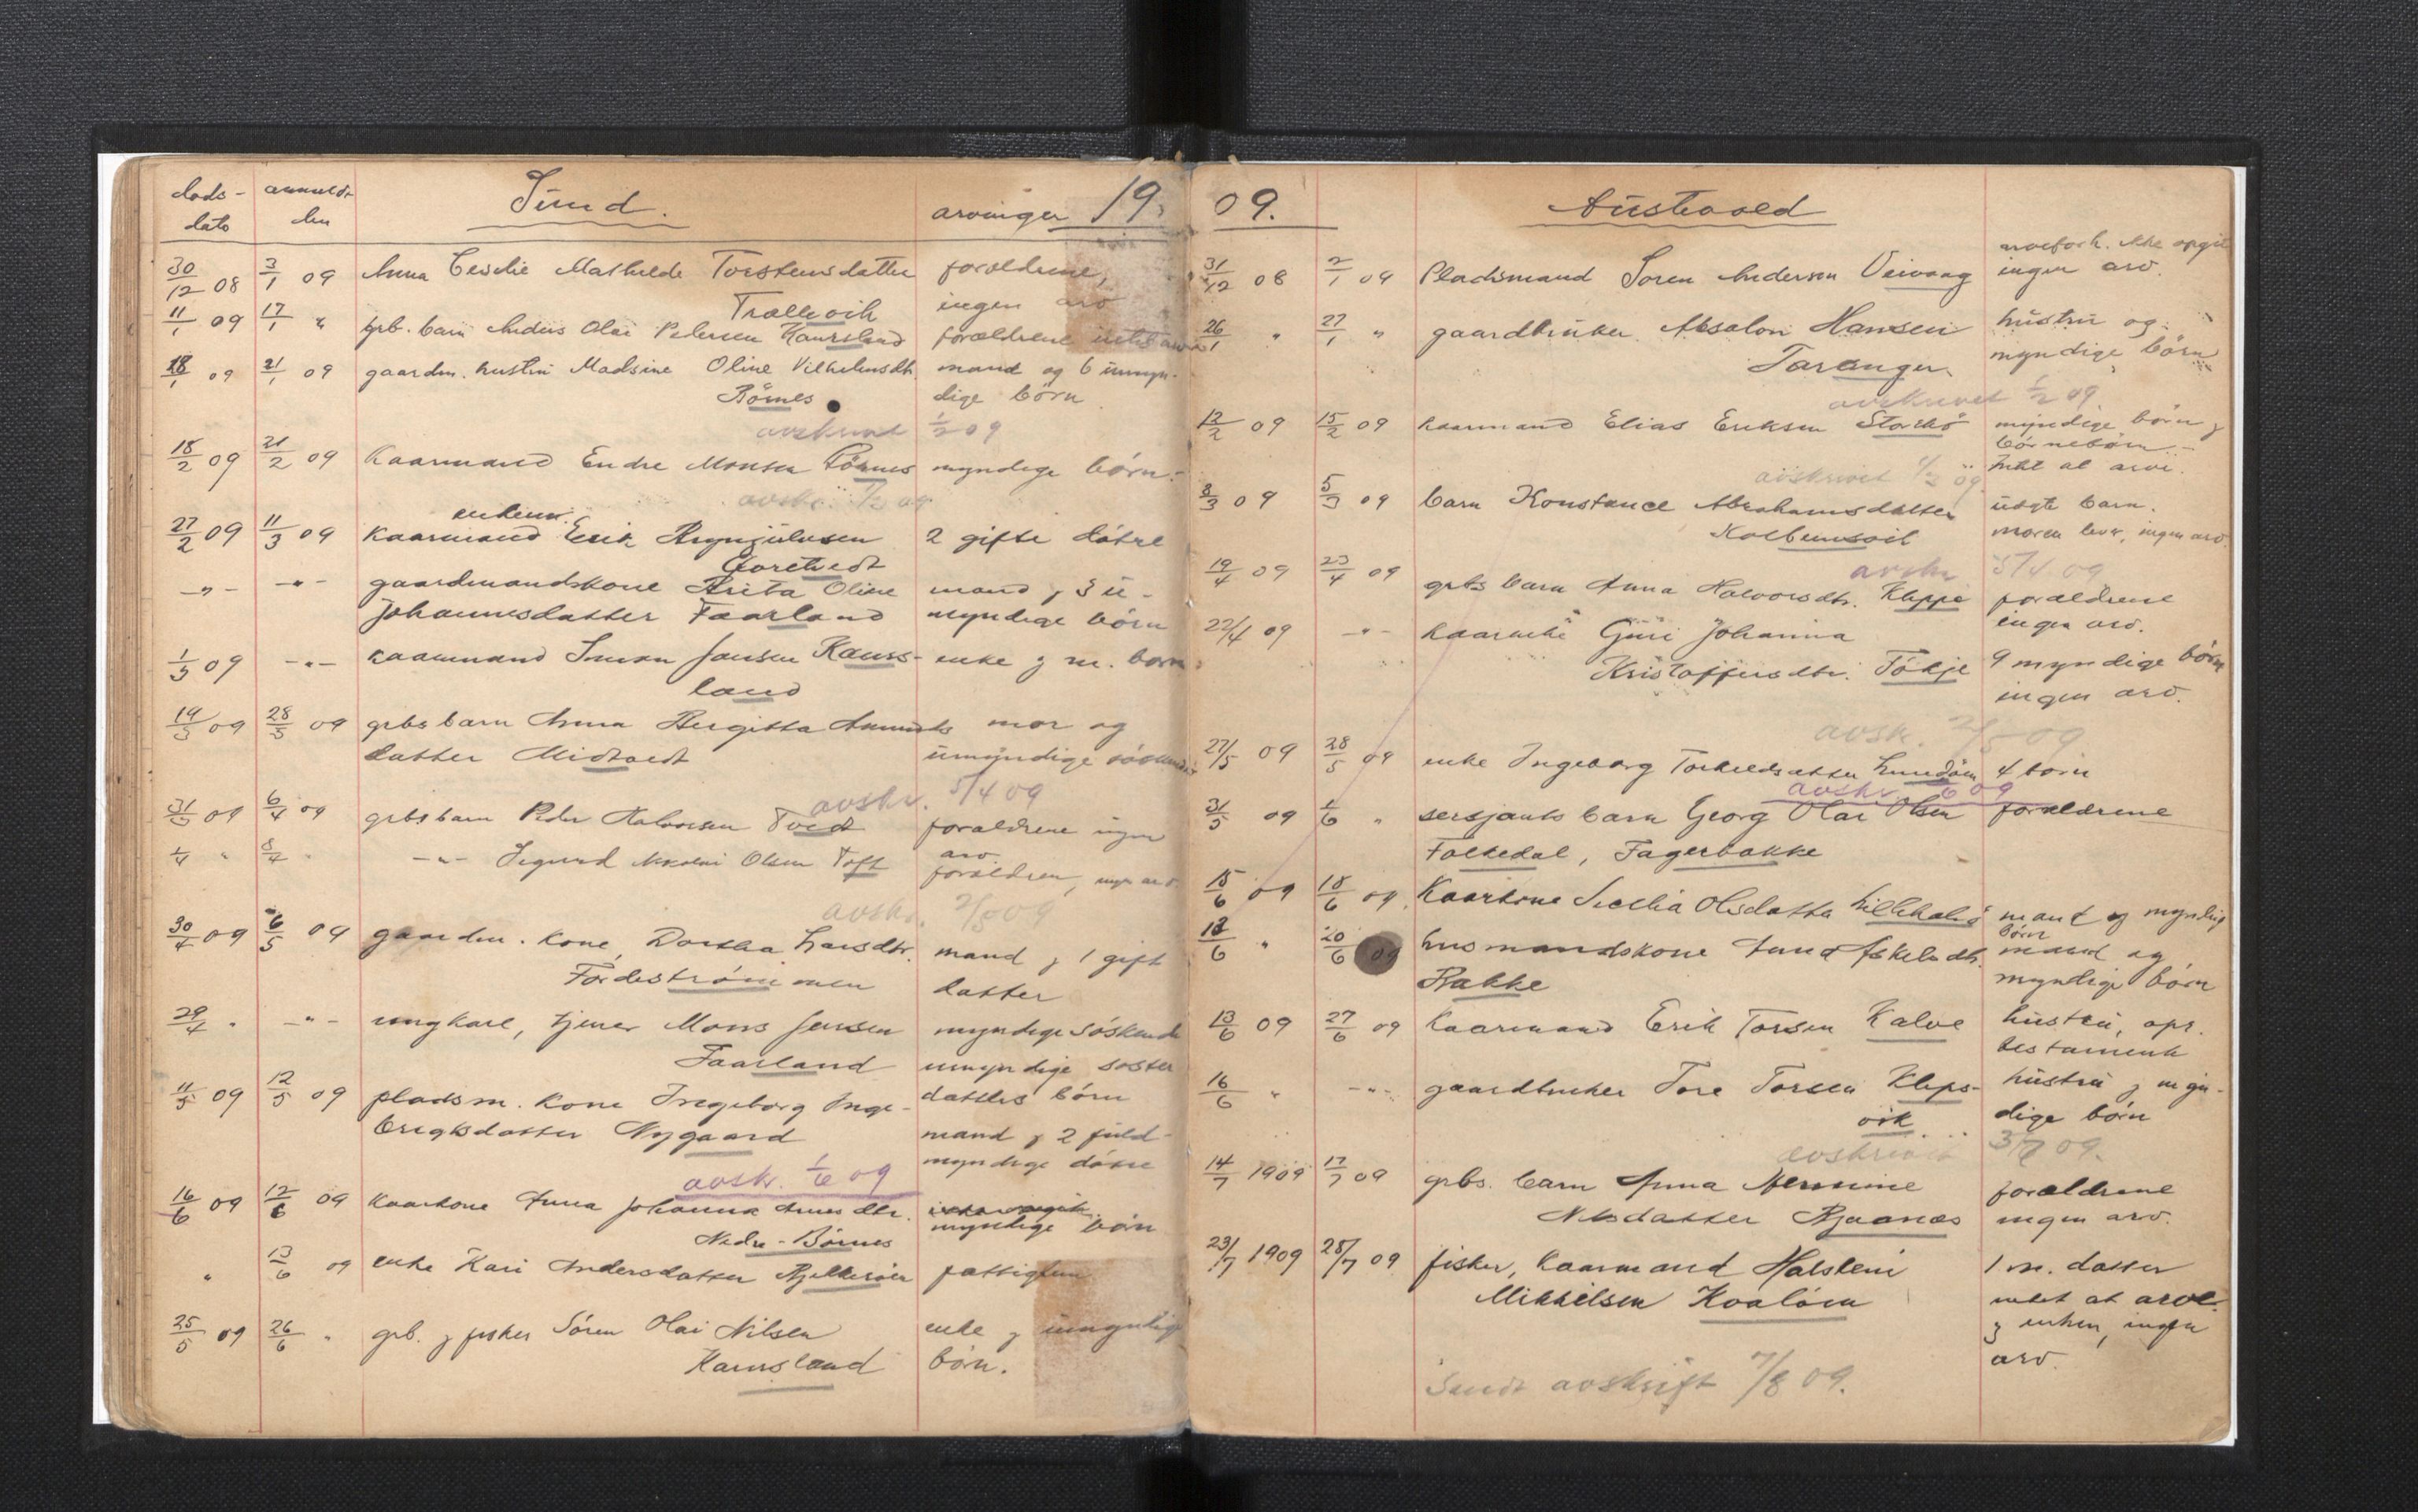 döds- anmeldt
dato den
Sund. arvinger 19
30/12 08 3/1 09 Anna Cecilie Mathilde Torstensdatter forældrene,
Trællevik ingen arv
11/1 09 17/1 " grb. barn Anders Olai Pedersen Kausland forældrene intet
18/1 09 21/1 09 gaardm. hustru Madsine Oline Vilhelmsdtr. mand og 6 umyn-
Börnes dige börn
avskrevet 1/2 09
18/2 09 21/2 09 Kaarmand Endre Monsen myndige börn.
avskr. 09
enkem.
27/2 09 11/3 09 Kaarmand Erik Brynjulvsen 2 gifte døtre
-"- -"- gaardmandskone Brita Oline mand og 3 u-
Johannesdatter Faarland myndige börn
1/3 09 -"- kaarmand Simon Jansen Kaus- enke og m. börn
land
19/3 09 28/3 09 grbs barn Anna Bergitta Amunds mor og
datter Midtvedt umyndige
avskr. 5/4 09
31/3 09 6/4 09 grbs barn Peder Halvorsen Tvedt forældrene ingen
arv
1/4 " 8/4 " -"- Sigurd Nikolai Olsen Toft forældren, ingen arv
avskr. 2/5 09
30/4 09 6/5 09 gaardm. kone Dorthea Larsdtr. mand og 1 gift
Fördeströmmen datter
29/4 " -"- ungkarl, tjener Mons Jensen myndige söskende
Faarland umyndige söster
11/5 09 12/5 09 pladsm. kone Ingeborg Inge- datters börn
brigtsdatter Nygaard mand og 2 fuld-
myndige döttre
avskr. 1/6 09
16/6 09 12/6 09 Kaarkone Anna Johanna dtr. myndige börn
Nedre-Börnes
" 13/6 09 enke Kari Andersdatter fattiglem
25/5 09 26/6 " grb. og fisker Sören Olai Nilsen enke og umyndige
Kausland börn.
09. Austevold
31/12 08 2/1 09 Pladsmand Soren Andersen Veivaag arveforh. ikke opgit
ingen arv.
26/1 " 27/1 " gaardbruker Absalon Hansen hustru og
Taranger myndige börn
avskrevet 1/2 09
12/2 09 15/2 09 kaarmand Elias Eriksen Storekö myndige börn og
börnebörn
Intet at arve.
avskrevet 1/3 09
3/3 09 5/3 09 barn Konstance Abrahamsdatter uegte barn.
Kolbeinsvik moren lever, ingen arv.
avskr. 5/4 09
19/4 09 23/4 09 grbs barn Anna Halvorsdtr. Kleppe forældrene
ingen arv.
22/4 09 -"- kaarenke Guri Johanna
Kristoffersdtr. Tökje 9 myndige börn
ingen arv.
avsk. 2/5 09
27/5 09 28/5 09 enke Ingeborg Torkeldsdatter 4 börn
avskr. 6 09
31/5 09 1/6 " sersjants barn Georg Olai Olsen forældrene
Folkedal, Fagerbakke
15/6 09 18/6 09 Kaarkone Secilia Olsdatter Lillekalsö mand og myndige
börn
18/6 " 20/6 09 husmandskone Anna Askelsdtr. mand og
Bakke myndige börn
13/6 09 27/6 09 Kaarmand Erik Torsen Kalve hustru, opr.
testamente
16/6 " -"- gaardbruker Tore Torsen Kleps- hustru og myn-
vik dige börn
avskrevet 3/7 09.
14/7 1909 17/7 09 grbs. barn Anna Hermine forældrene
Nilsdatter Bjaanæs ingen arv.
23/7 1909 28/7 09 fisker, kaarmand Halstein 1 m. datter
Mikkelsen Kvalöen intet at arve
og enken, ingen
arv.
Sendt avskrift 7/8 09.